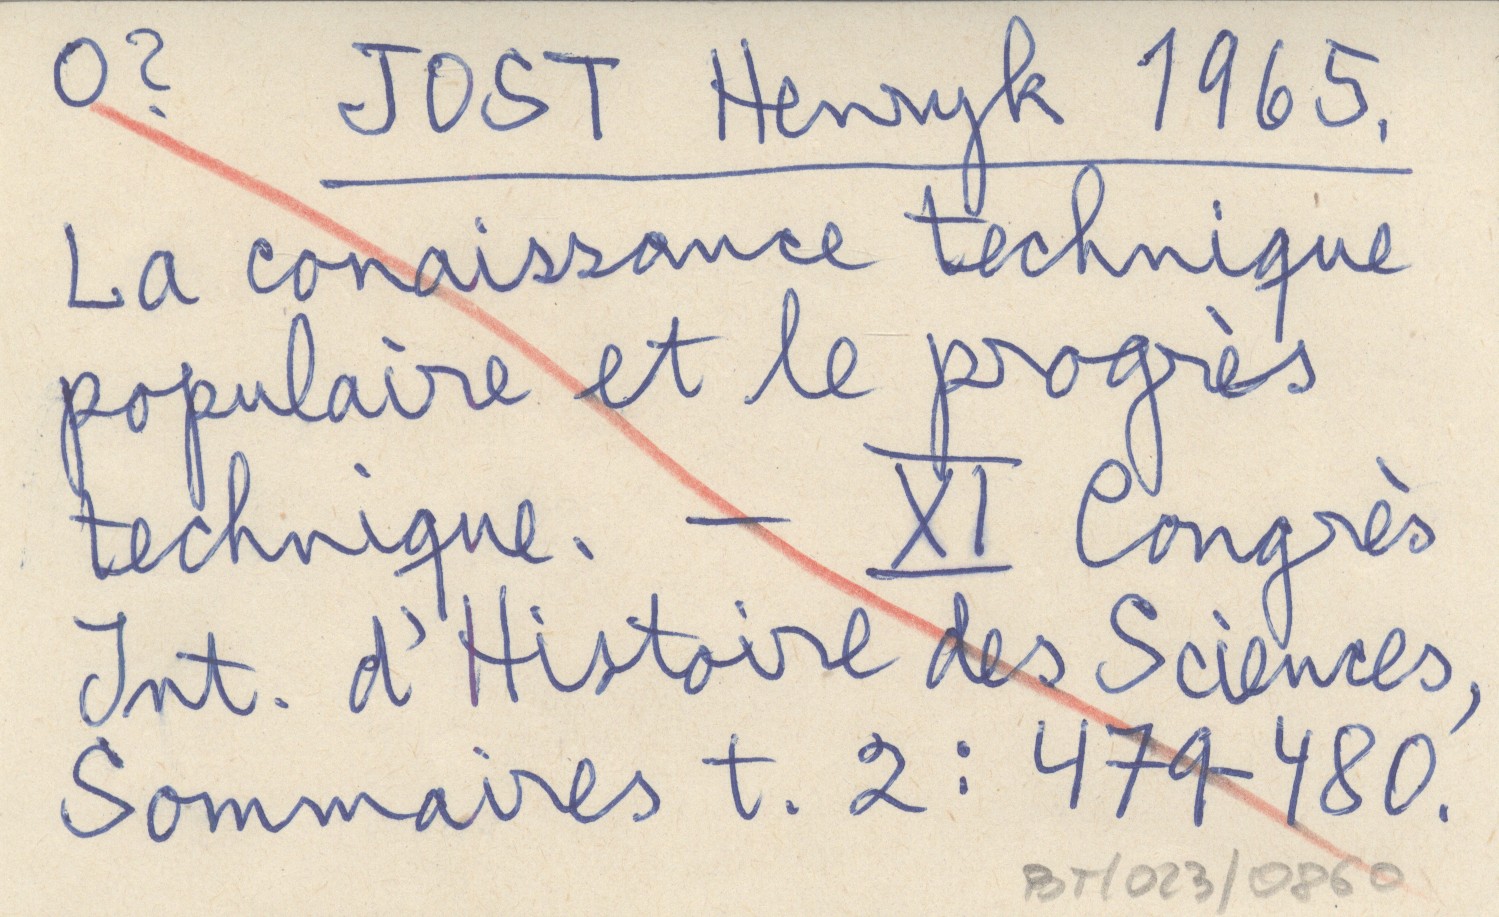 O? JOST Henryk 1965.
La conaissance technique
populaire et le progrès
technique. — XI Congrès
Int. d'Histoire des Sciences,
Sommaires t. 2: 479-480.
BT/023/0860